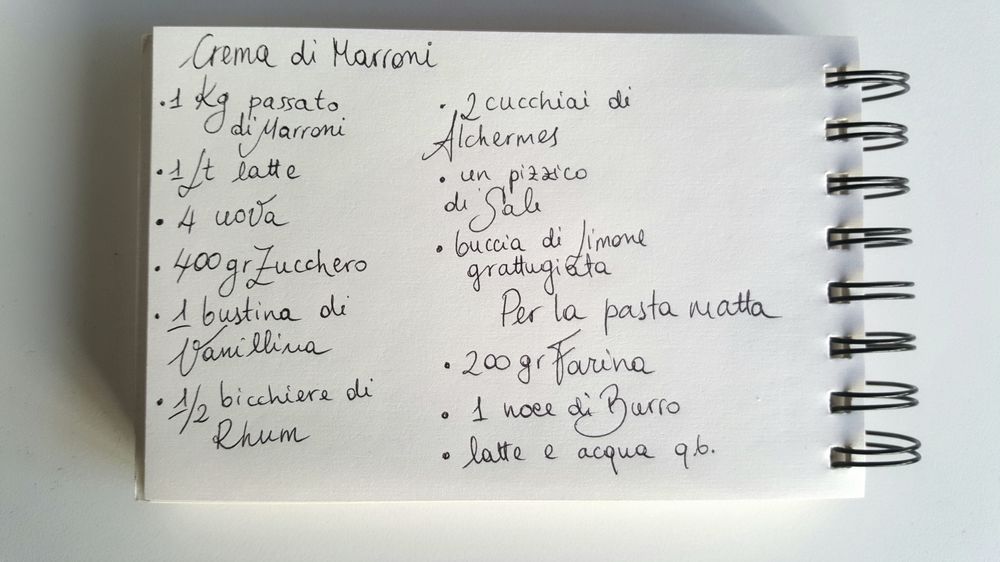 Crema di Marroni
• 1 Kg passato
di Marroni
• 1 Lt latte
• 4 uova
• 400 gr Zucchero
• 1 bustina di
Vanillina
• 1/2 bicchiere di
Rhum
• 2 cucchiai di
Alchermes
• un pizzico
di Sale
• buccia di limone
grattugiata
Per la pasta matta
• 200 gr Farina
• 1 noce di Burro
• latte e acqua q.b.